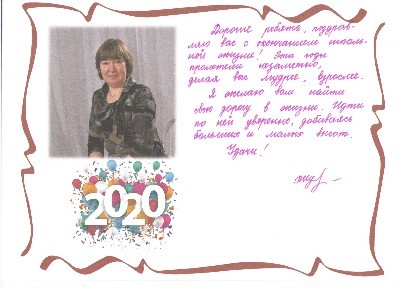 Дорогие ребята, поздрав-
ляю вас с окончанием школь-
ной жизни! Эти годы
пролетели незаметно,
делая вас мудрее, взрослее.
Я желаю вам найти
свою дорогу в жизни. Идти
по ней уверенно, добиваясь
больших и малых высот.
Удачи!
2020